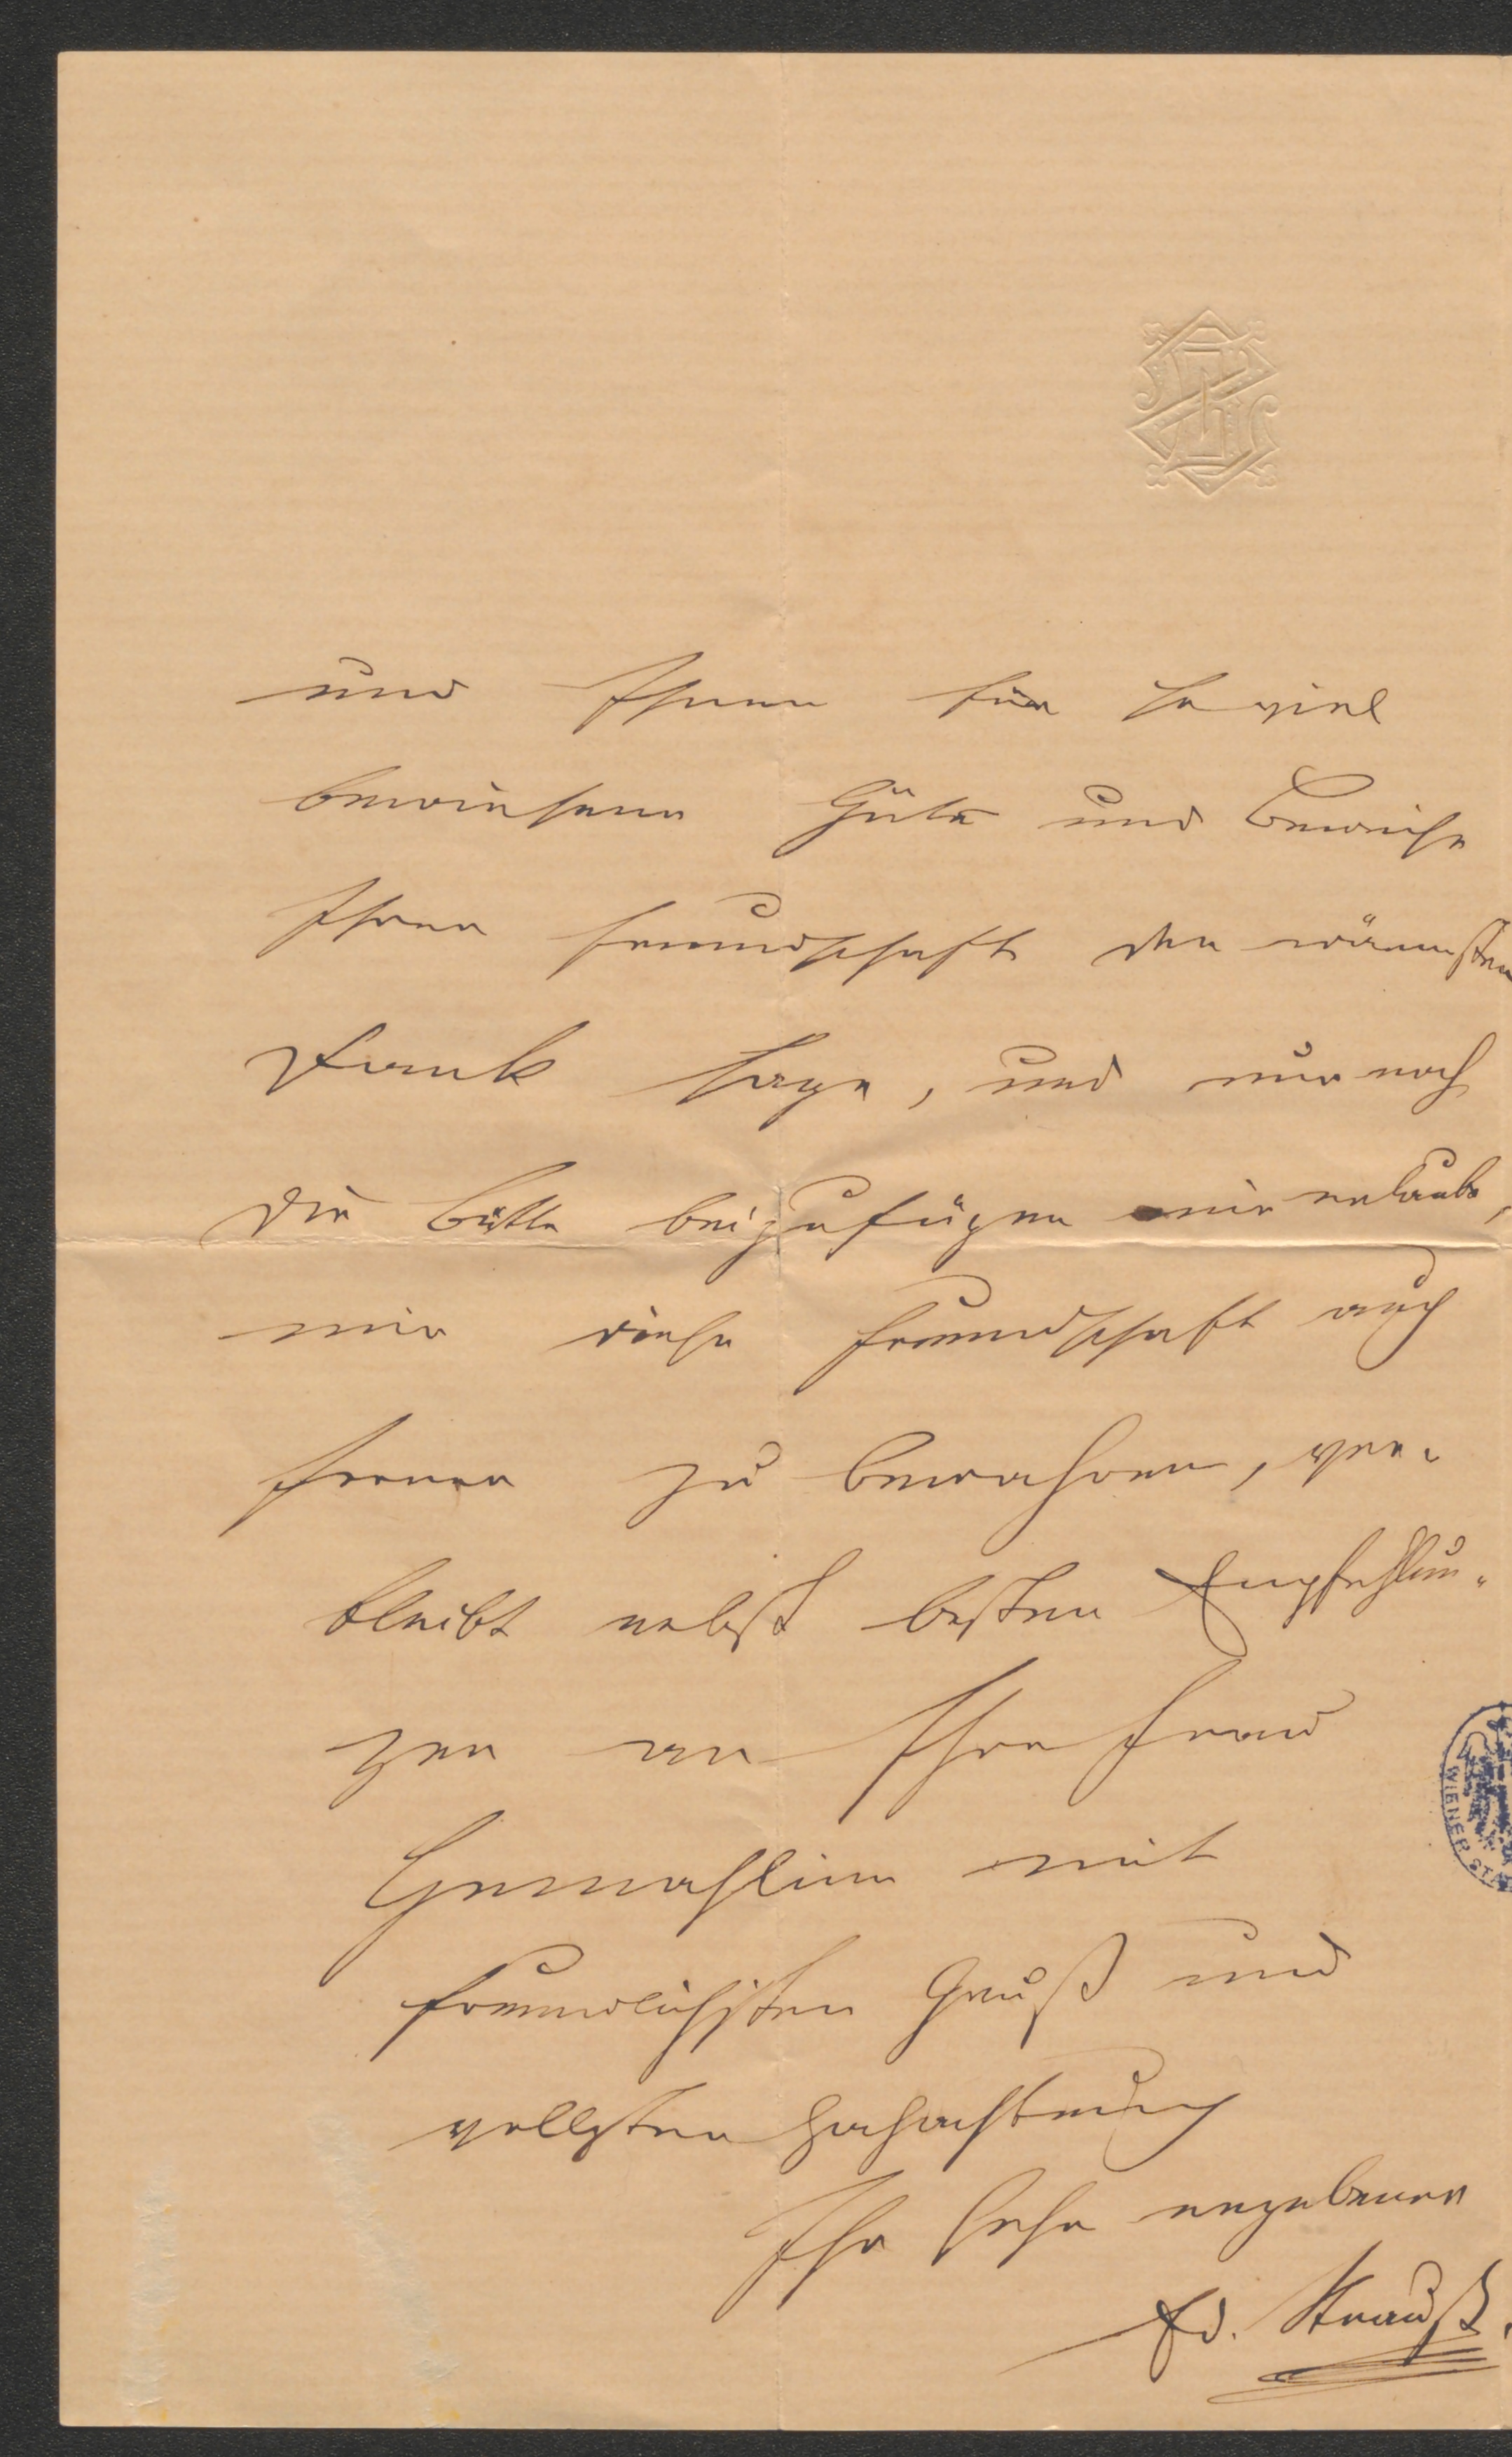 und Ihnen für so viel
bewiesene Güte und Beweise
Ihrer Freundschaft den wärmsten
Dank sage, und nur noch
die Bitte beizufügen mir erlaube,
mir diese Freundschaft auch
ferner zu bewahren, ver-
bleibt nebst besten Empfehlun-
gen an Ihre Frau
Gemahlin mit
freundlichsten Gruß und
vollster Hochachtung
Ihr sehr ergebener
Ed. Strauß.
WIENER ST